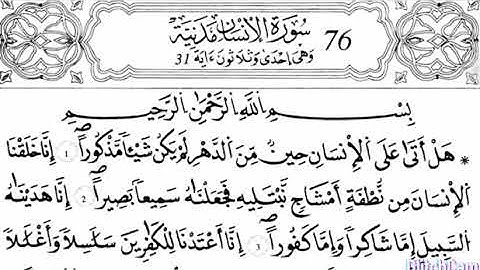 سُورَةُ الْإِنسَانِ مَدَنِيَّةٌ 76
وَهْىَ اِحْدَىٰ وَثَلَاثُونَ ءَايَةً 31
بِسْمِ اللَّهِ الرَّحْمَٰنِ الرَّحِيمِ
* هَلْ أَتَىٰ عَلَى الْإِنسَانِ حِينٌ مِّنَ الدَّهْرِ لَمْ يَكُن شَيْـًٔا مَّذْكُوراً 1 إِنَّا خَلَقْنَا
الْإِنسَانَ مِن نُّطْفَةٍ أَمْشَاجٍ نَّبْتَلِيهِ فَجَعَلْنَاهُ سَمِيعاً بَصِيراً 2 إِنَّا هَدَيْنَاهُ
السَّبِيلَ إِمَّا شَاكِراً وَإِمَّا كَفُوراً 3 إِنَّا أَعْتَدْنَا لِلْكَافِرِينَ سَلَٰسِلاً وَأَغْلَٰلاً